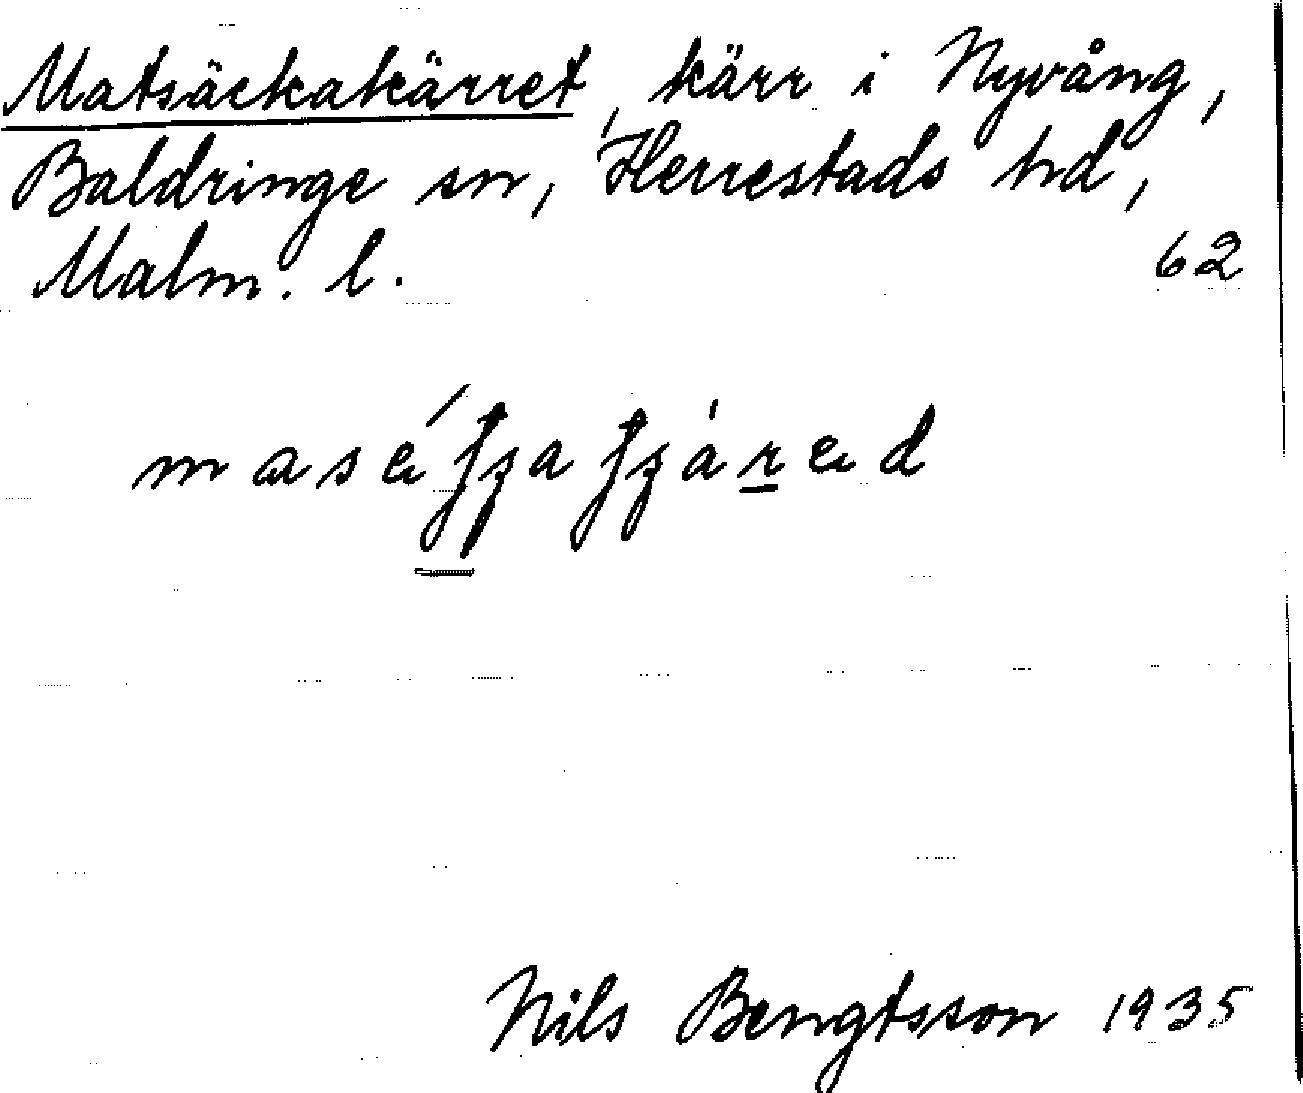 Matsäckakärret, kärr i Nyvång,
Baldringe sn, Herrestads hd,
Malm. l.
62
Nils Bengtsson 1935